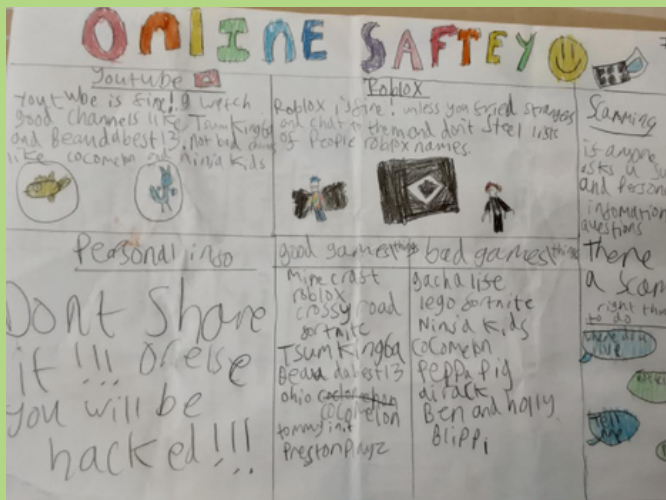 ONLINE SAFTEY
Youtube
youtube is fine! I watch
good channels like Tsumkingba
and Beaudabest13, not bad
like cocomeln or Ninja Kids
Roblox
Roblox is fine! unless you fried strangers
and chat to them and don't steel lists
of People roblox names.
Scamming
is anyone
asks a
and Person
infomation
questions
There
a scam
right thi
to do
Where do u
live
Tell
me
Personal info
Dont Share
it!!! Or else
you will be
hacked!!!
good games/things
Minecraft
roblox
crossy road
fortnite
Tsumkingba
Beau dabest13
ohio
cocomelon
tommyinit
Prestonplayz
bad games/things
gacha life
lego fortnite
Ninja Kids
cocomeln
Peppa pig
airack
Ben and holly
Blippi